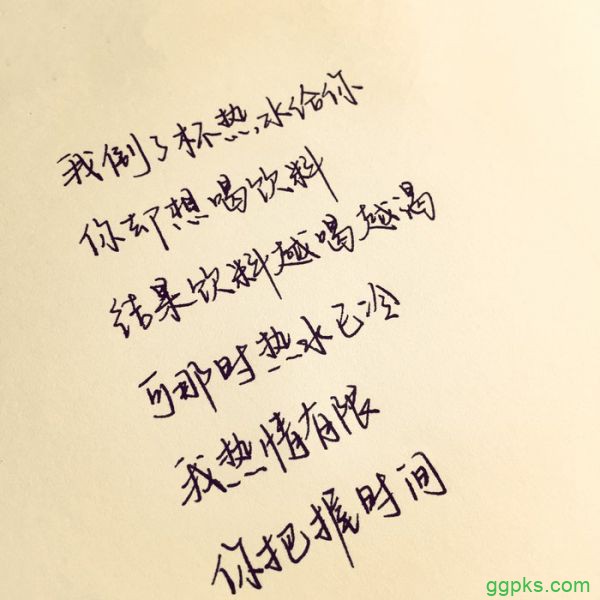 我倒了杯热水给你
你却想喝饮料
结果饮料越喝越渴
可那时热水已冷
我热情有限
你把握时间
ggpks.com